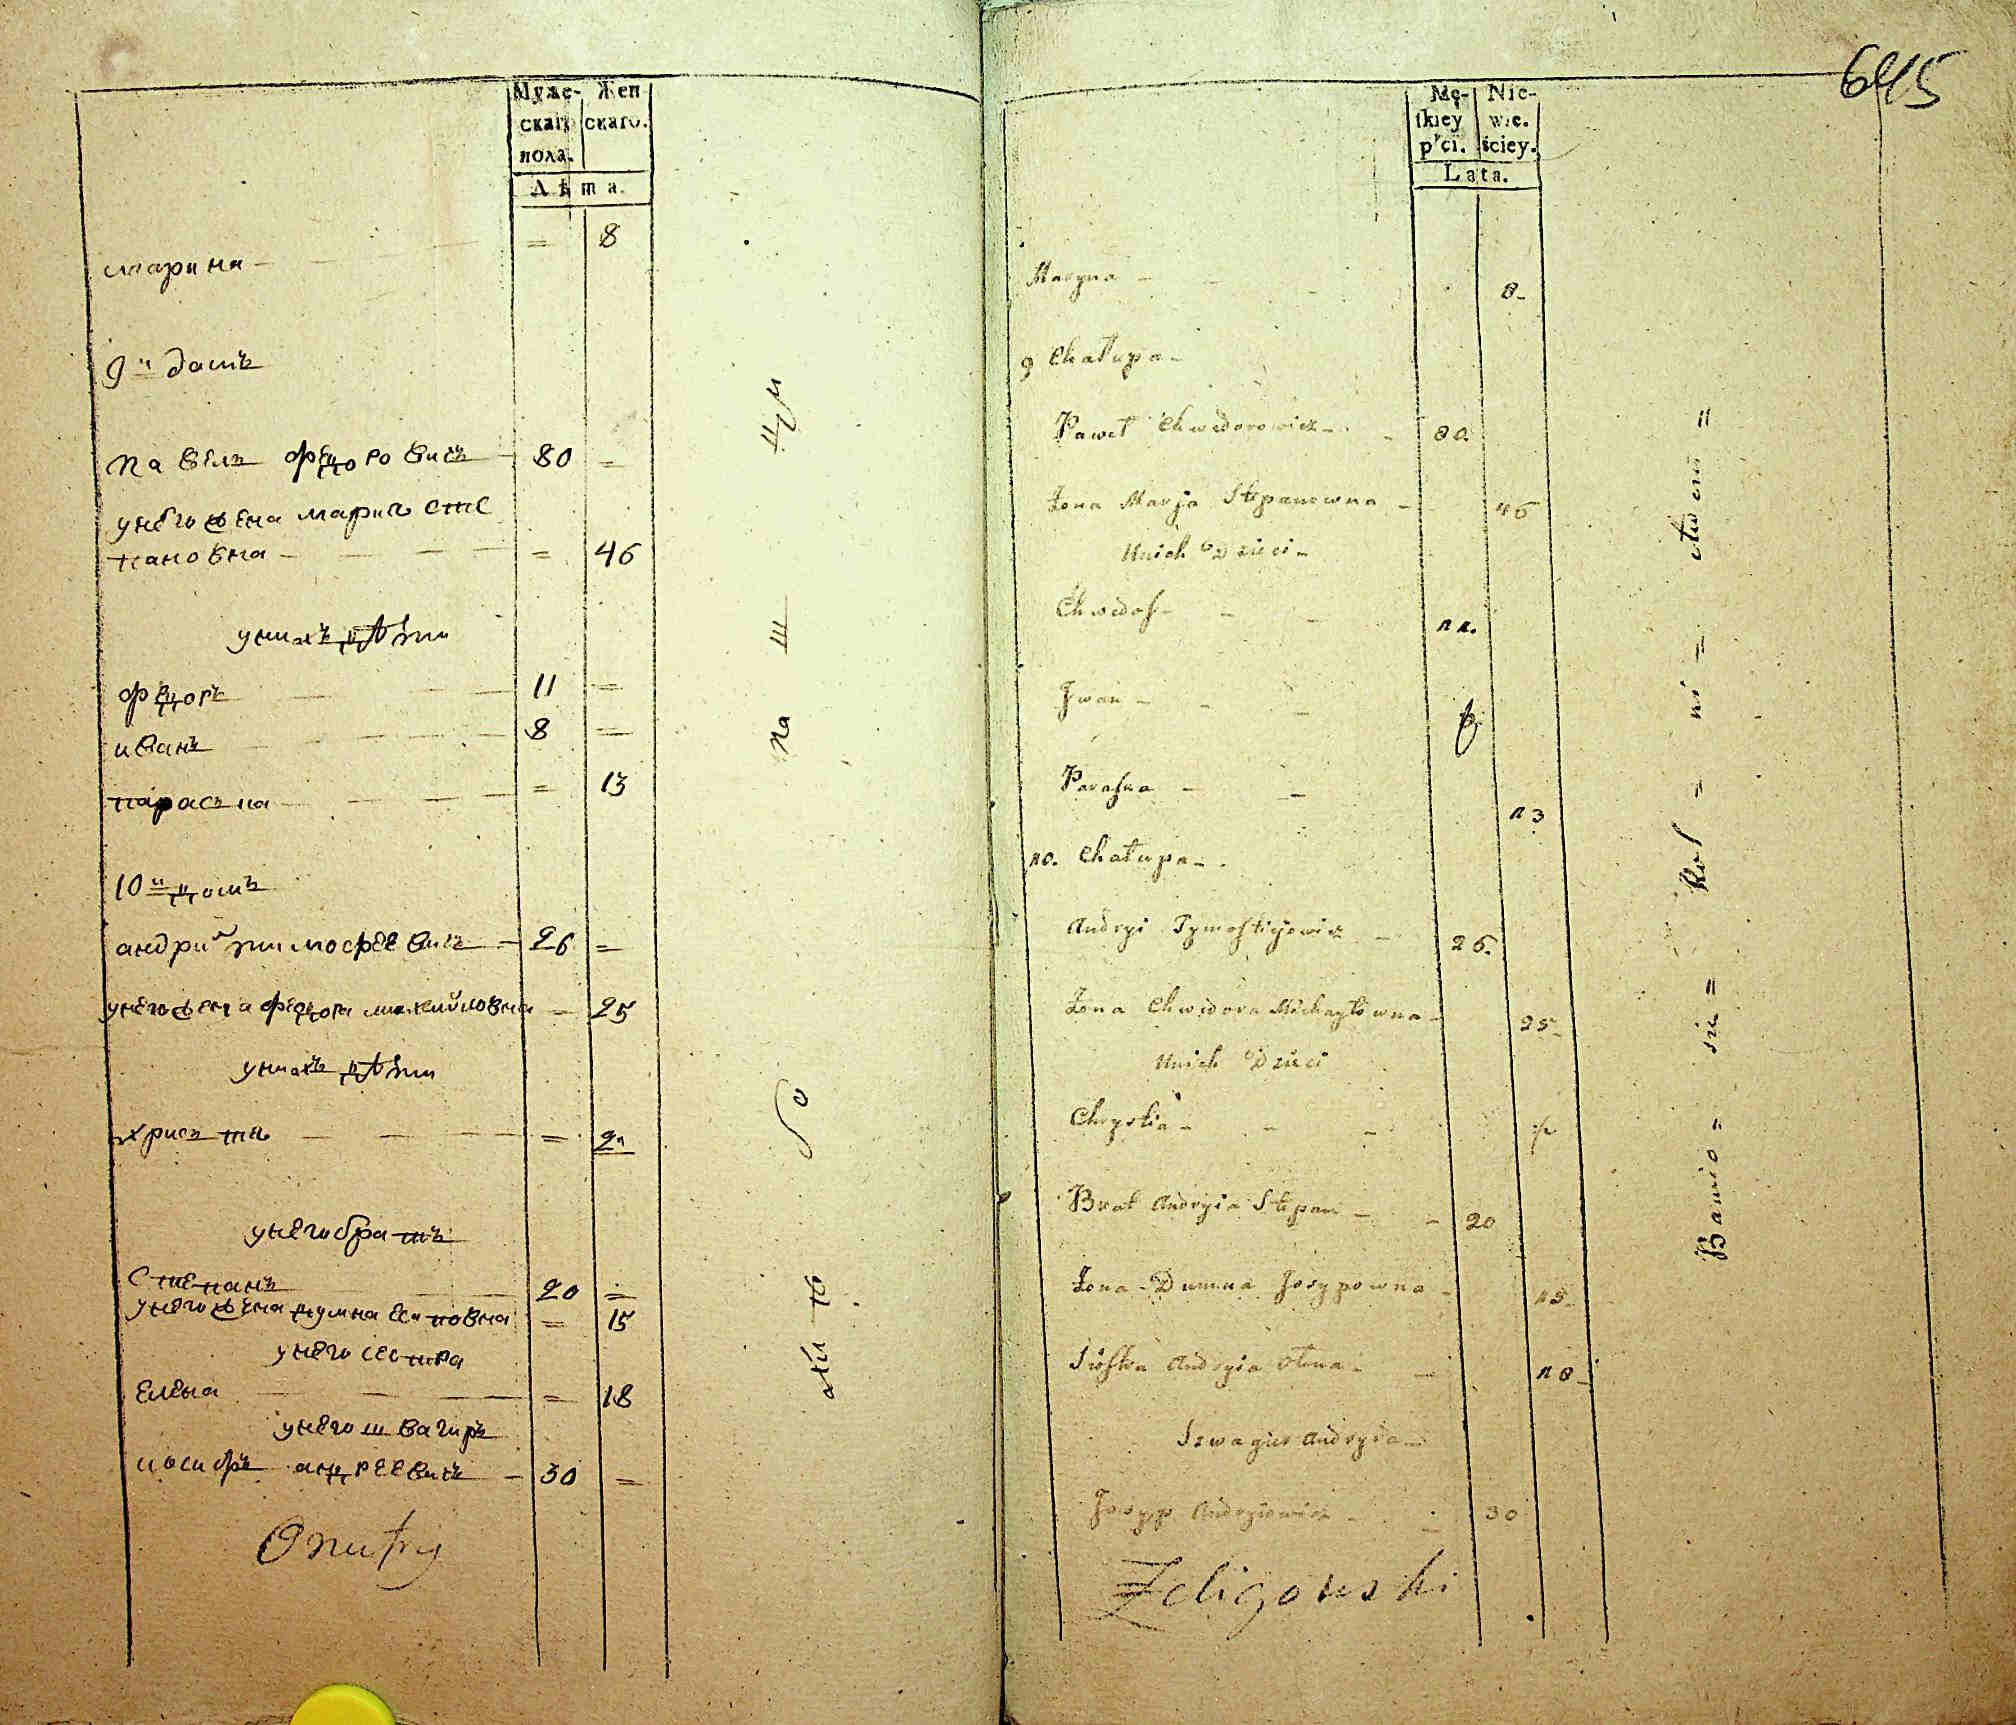 Муже- Жен
скаго скаго.
пола.
Лѣта.
марина - = 8
9й домъ
павелъ федоровичъ - 80 =
унего жена мария сте
пановна - = 46
унихъ дѣти
федоръ 11 =
иванъ 8 =
параска = 13
10й домъ
андрий тимофеевичъ - 26 =
унего жена федора михайловна - 25
унихъ дѣти
христя = 2
унего братъ
степанъ 20 =
унего жена думна есиповна = 15
унего сестра
елена = 18
унего швагиръ
иосифъ андреевичъ - 30 =
Onufry
645
Mę- Nie-
ſkiey wie-
płci. ściey.
Lata.
Maryna - 8-
9 Chałupa -
Paweł Chwedorowicz - 80.
Żona Marja Stepanowna - 46
Unich Dzieci -
Chwedoſ - 11.
Jwan - 8
Paraſka - 13
10. Chałupa -
Andryi Tymoftijowicz - 26.
Żona Chwedora Michayłowna - 25-
Unich Dzieci
Chrystia -
Brat Andryia Stepan - 20
Żona Dumna Josypowna - 15-
Siostra Andryia Olena - 18-
Szwagier Andryia -
Josyp Andryiowicz - 30
Żeligowski